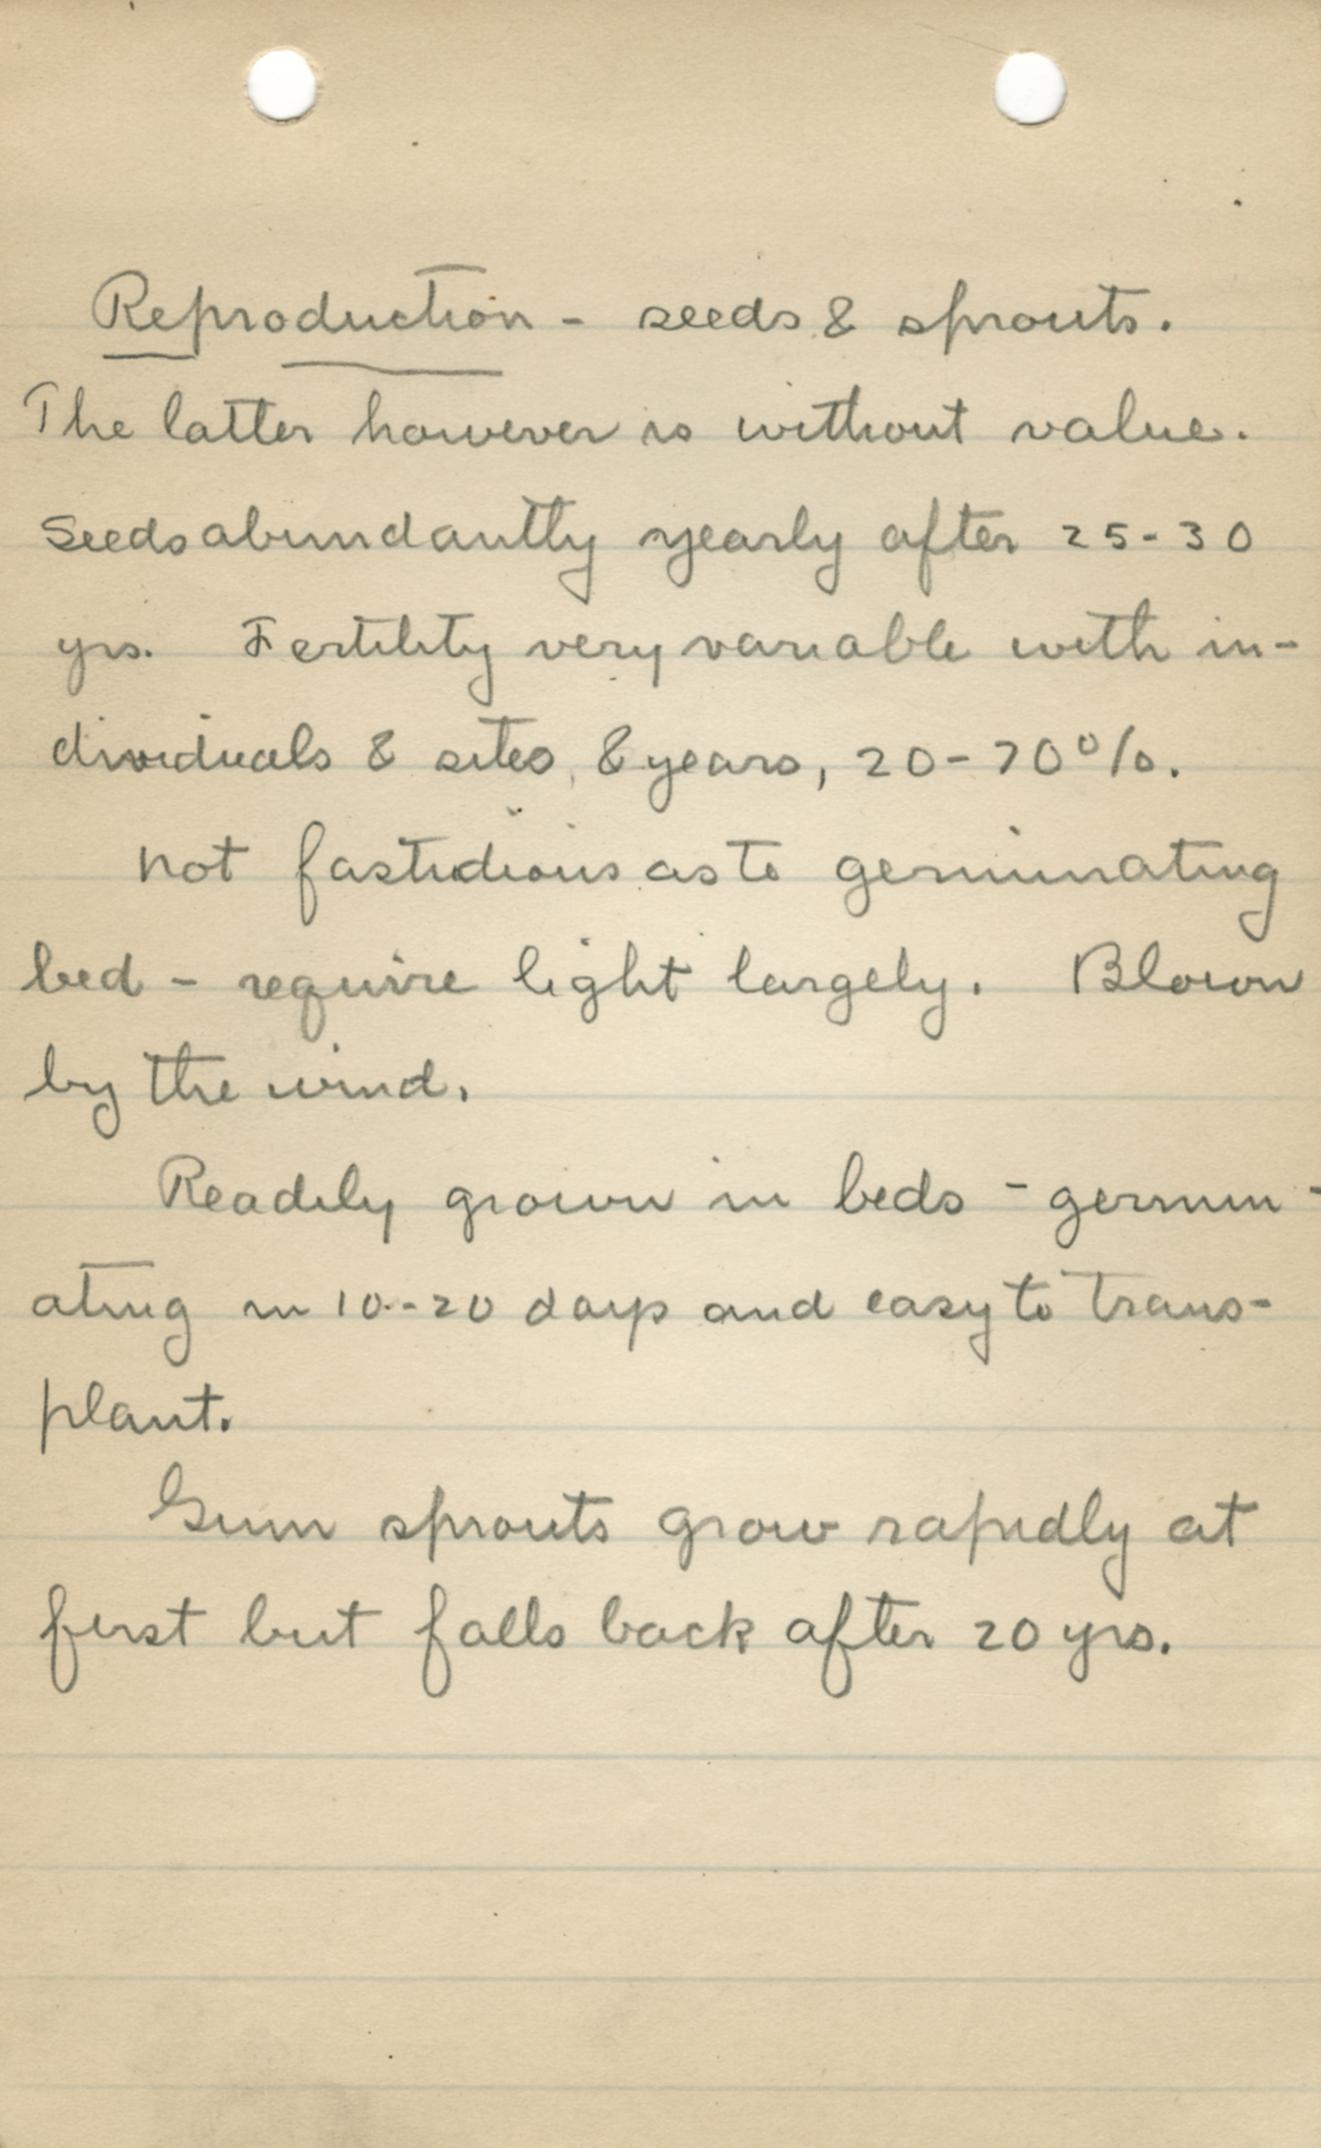 Reproduction - seeds & sprouts.
The latter however is without value.
Seeds abundantly yearly after 25-30
yrs. Fertility very variable with in-
dividuals & sites, & years, 20-70%.
not fastidious as to germinating
bed - require light largely. Blown
by the wind.
Readily grown in beds - germin-
ating in 10-20 days and easy to trans-
plant.
Gum sprouts grow rapidly at
first but falls back after 20 yrs.